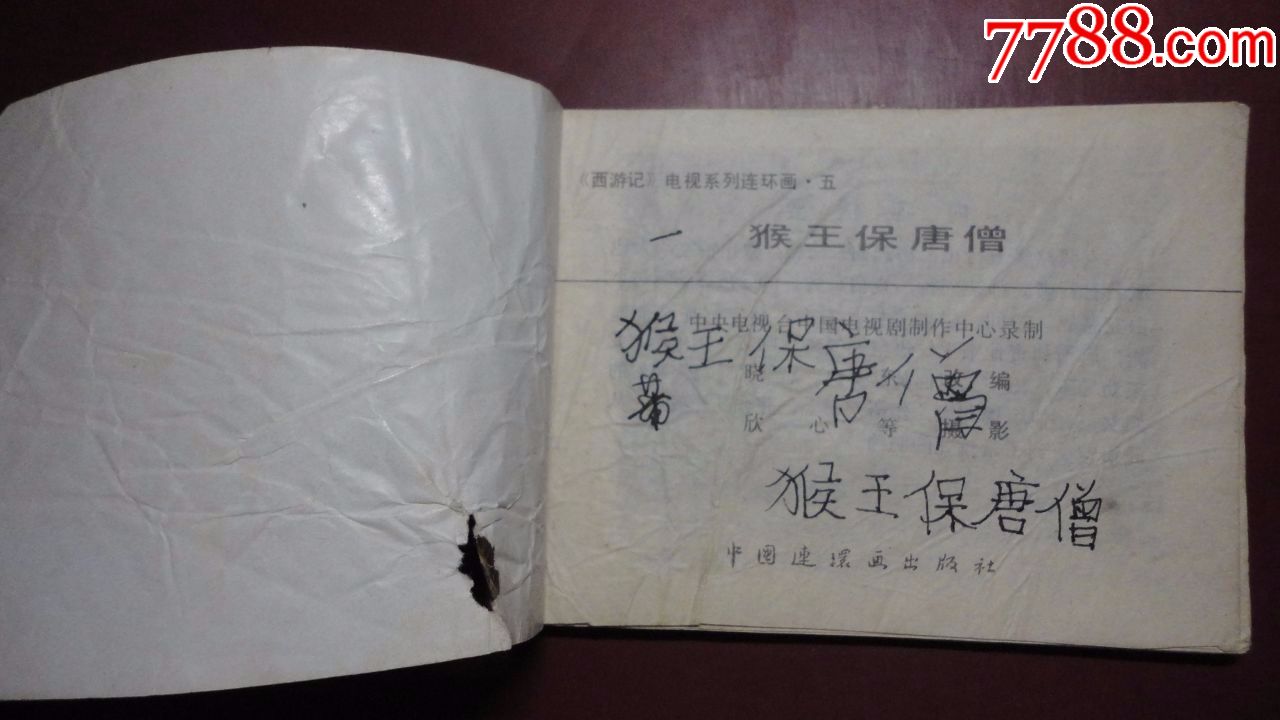 7788.com
《西游记》电视系列连环画·五
一 猴王保唐僧
中央电视台中国电视剧制作中心录制
猴王保唐僧
晓东改编
欣心等摄影
猴王保唐僧
中国连環画出版社